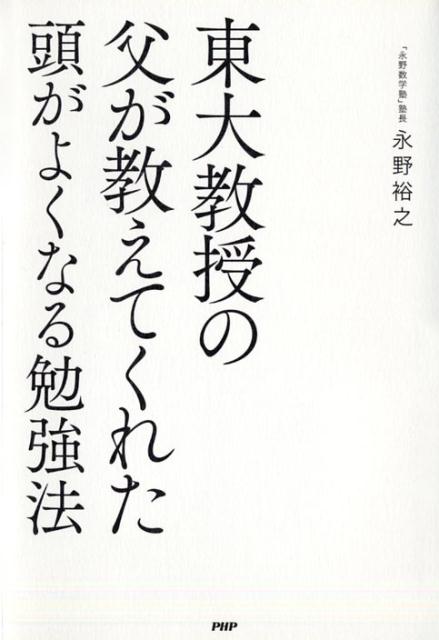 「永野数学塾」塾長 永野裕之
東大教授の
父が教えてくれた
頭がよくなる勉強法
PHP